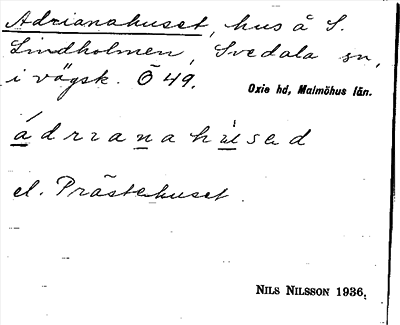 Adrianahuset, hus å S.
Lindholmen, Svedala sn,
i vägsk. Ö 49.
Oxie hd, Malmöhus län.
ádrianahúsəd
el. Prästehuset.
NILS NILSSON 1936.